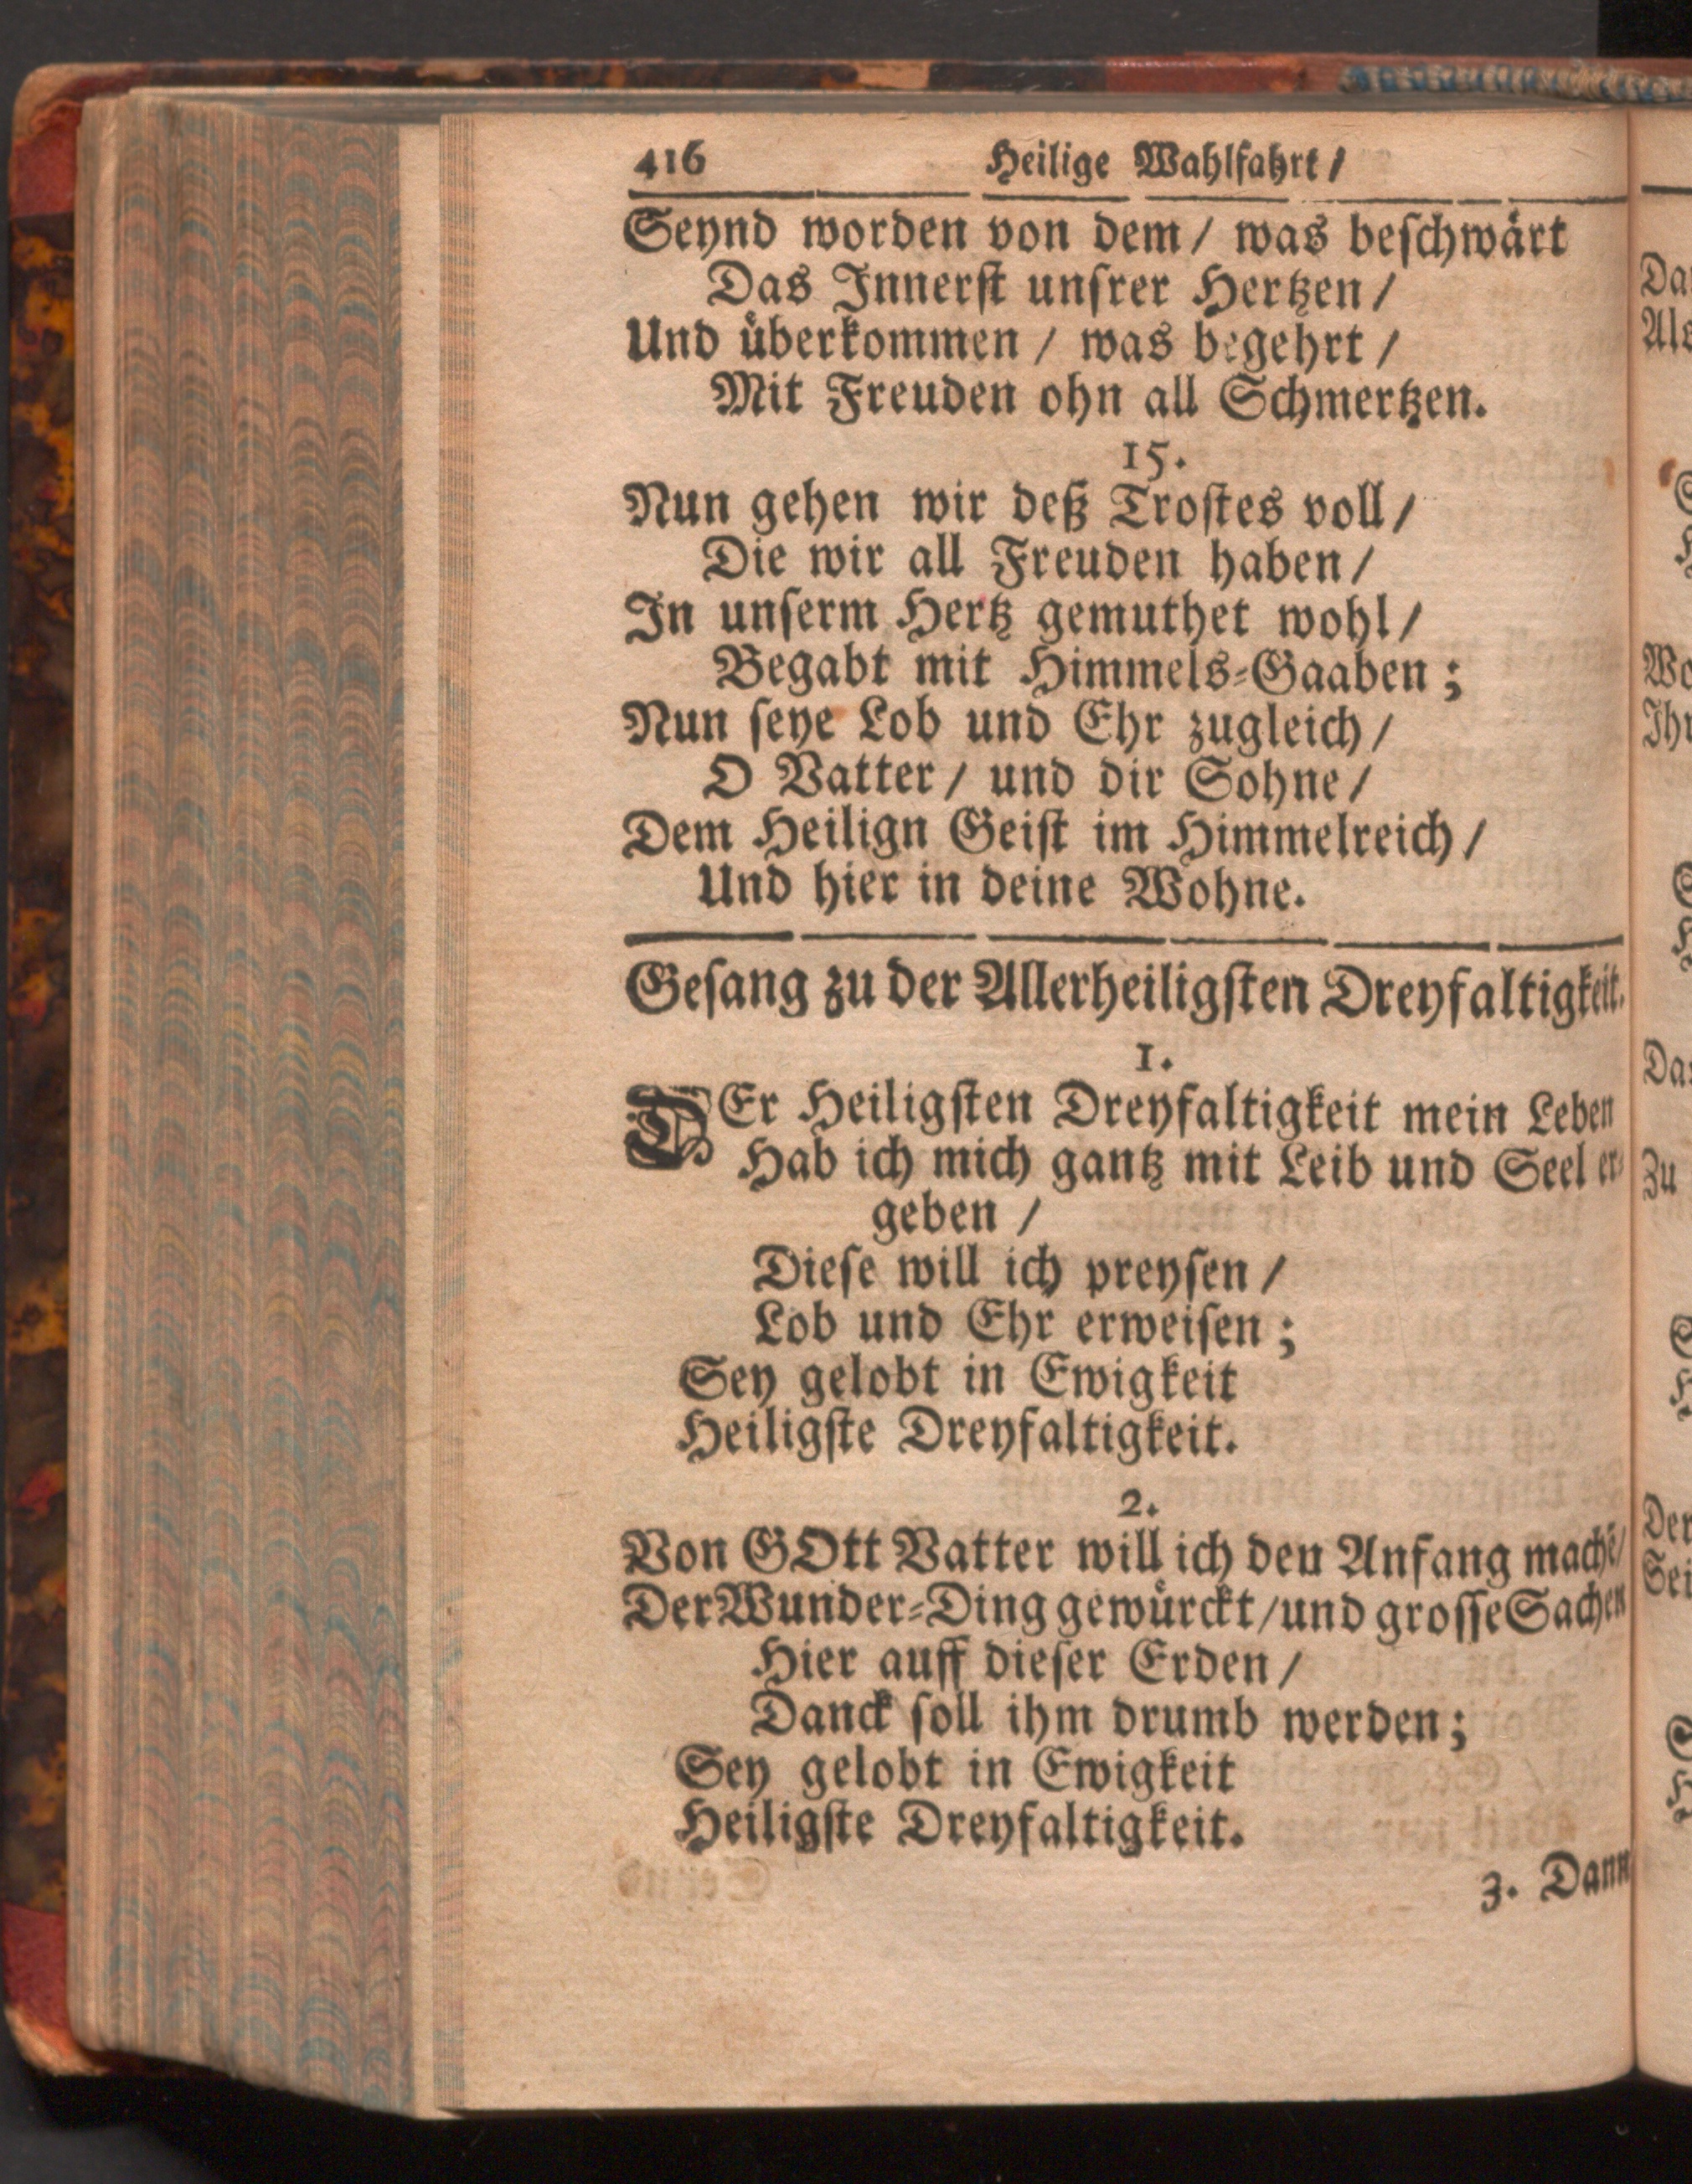 416 Heilige Wahlfahrt /
Seynd worden von dem / was beschwärt
Das Innerst unsrer Hertzen /
Und überkommen / was begehrt /
Mit Freuden ohn all Schmertzen.
15.
Nun gehen wir deß Trostes voll /
Die wir all Freuden haben /
In unserm Hertz gemuthet wohl /
Begabt mit Himmels-Gaaben ;
Nun seye Lob und Ehr zugleich /
O Vatter / und dir Sohne /
Dem Heilign Geist im Himmelreich /
Und hier in deine Wohne.
Gesang zu der Allerheiligsten Dreyfaltigkeit.
1.
DEr Heiligsten Dreyfaltigkeit mein Leben
Hab ich mich gantz mit Leib und Seel er-
geben /
Diese will ich preysen /
Lob und Ehr erweisen ;
Sey gelobt in Ewigkeit
Heiligste Dreyfaltigkeit.
2.
Von GOtt Vatter will ich den Anfang machē /
Der Wunder-Ding gewürckt / und grosse Sachen
Hier auff dieser Erden /
Danck soll ihm drumb werden ;
Sey gelobt in Ewigkeit
Heiligste Dreyfaltigkeit.
3. Dann